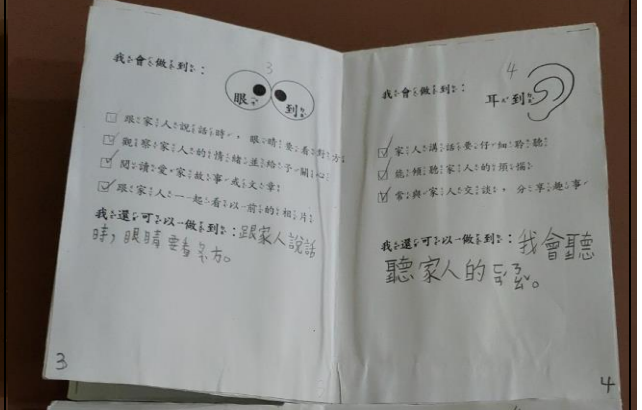 3
我會做到：
眼到
跟家人說話時，眼睛要看對方。
觀察家人的情緒並給予關心。
閱讀愛家故事或文章。
跟家人一起看以前的相片。
我還可以做到：跟家人說話
時，眼睛要看多方。
3
4
我會做到：
耳到
家人講話要仔細聆聽。
能傾聽家人的煩惱。
常與家人交談，分享趣事。
我還可以做到：我會聽
聽家人的
4